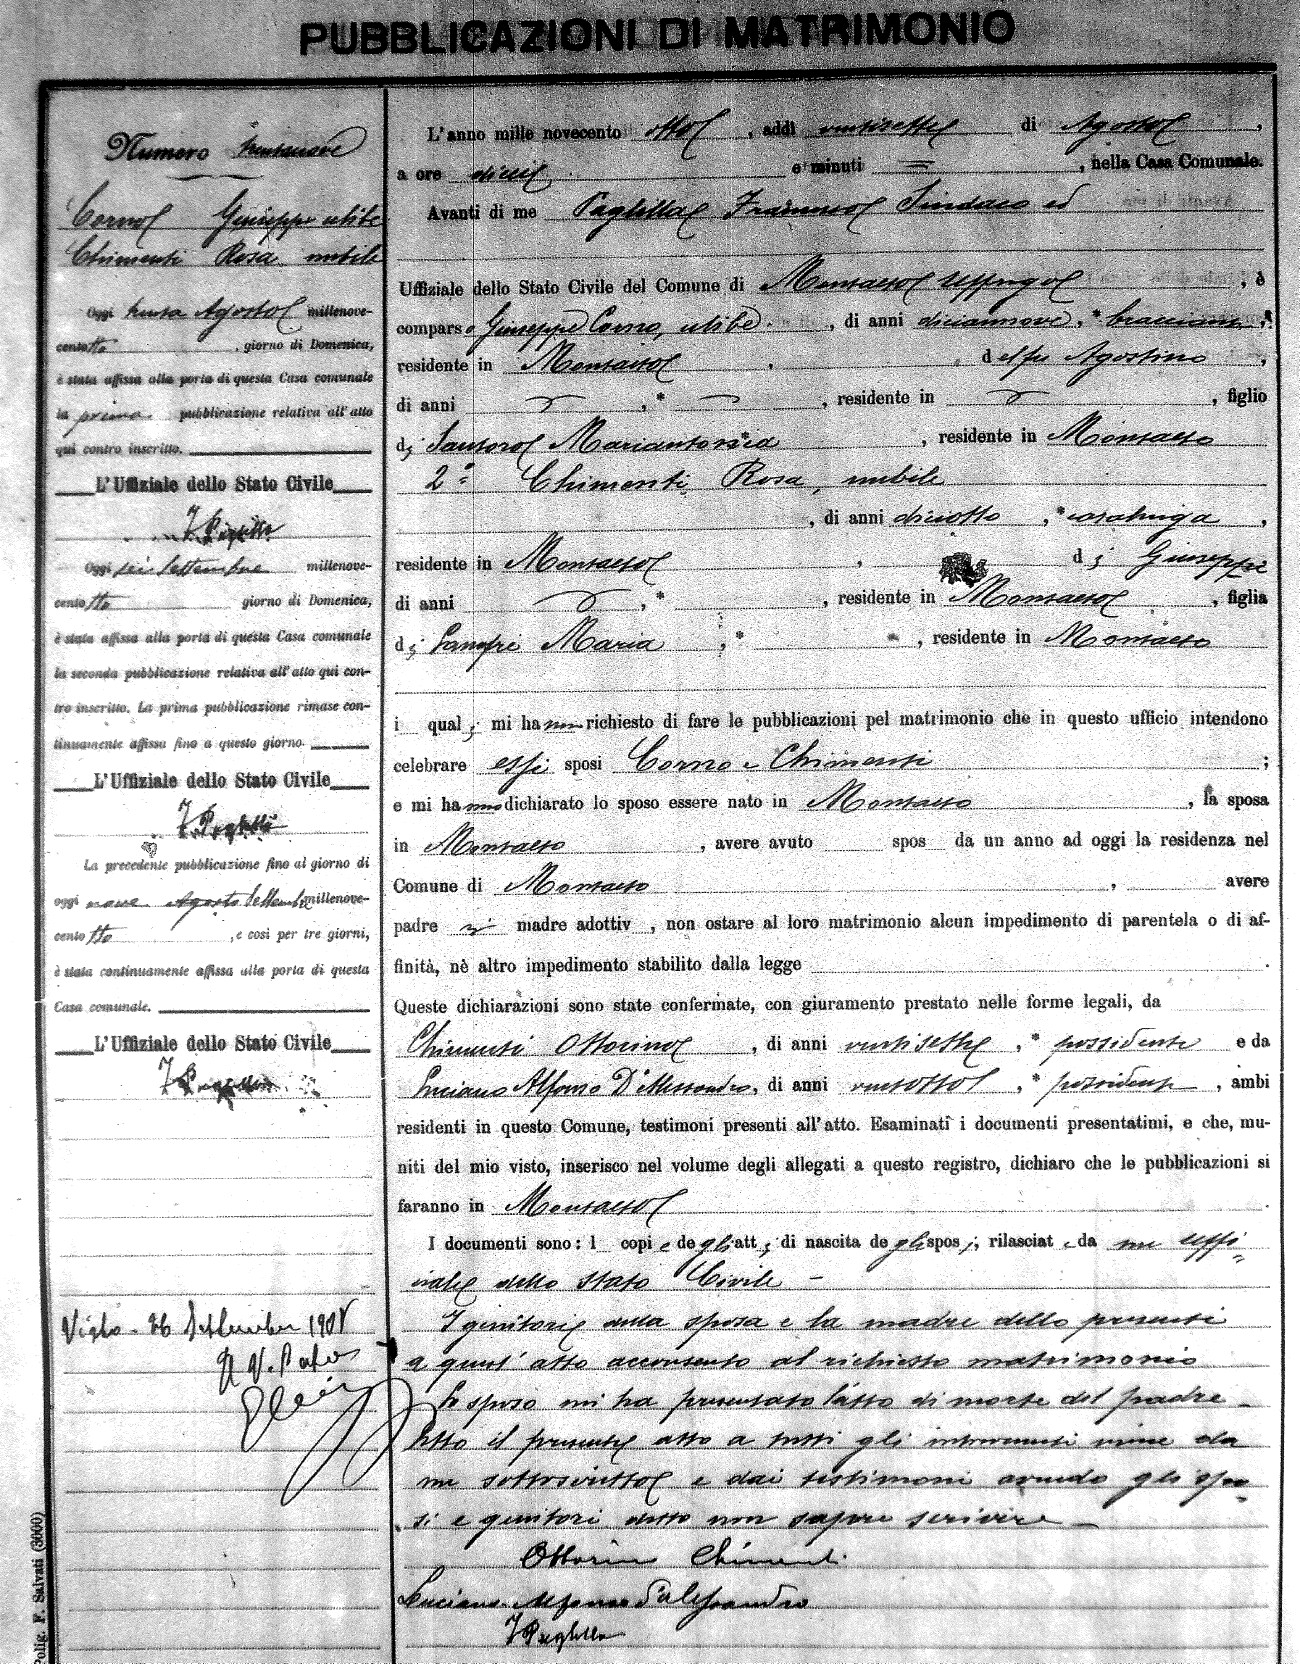 PUBBLICAZIONI DI MATRIMONIO
Numero trentanove
Corno Giuseppe celibe
Chimenti Rosa nubile
Oggi trenta Agosto millenove-
cento otto, giorno di Domenica,
è stata affissa alla porta di questa Casa comunale
la prima pubblicazione relativa all'atto
qui contro inscritto.
L'Uffiziale dello Stato Civile
Oggi sei Settembre millenove-
cento otto giorno di Domenica,
è stata affissa alla porta di questa Casa comunale
la seconda pubblicazione relativa all'atto qui con-
tro inscritto. La prima pubblicazione rimase con-
tinuamente affissa fino a questo giorno.
L'Uffiziale dello Stato Civile
La precedente pubblicazione fino al giorno di
oggi nove Agosto Settembre millenove-
cento otto, e così per tre giorni,
è stata continuamente affissa alla porta di questa
Casa comunale.
L'Uffiziale dello Stato Civile
Visto - 26 Settembre 1908
Polig. F. Salvati (3000)
L'anno mille novecento otto, addì ventisette di Agosto,
a ore dieci e minuti =, nella Casa Comunale.
Avanti di me Francesco Sindaco ed
Uffiziale dello Stato Civile del Comune di Montalto Uffugo, è
comparso Giuseppe Corno, celibe, di anni diciannove, * bracciante,
residente in Montalto, del fu Agostino,
di anni, *, residente in, figlio
di Santoro Mariantonia *, residente in Montalto
2° Chimenti Rosa, nubile
, di anni diciotto, * casalinga,
residente in Montalto, di Giuseppe
di anni, *, residente in Montalto, figlia
di Maria, *, residente in Montalto
i quali mi hanno richiesto di fare le pubblicazioni pel matrimonio che in questo ufficio intendono
celebrare essi sposi Corno e Chimenti;
e mi hanno dichiarato lo sposo essere nato in Montalto, la sposa
in Montalto, avere avuto spos da un anno ad oggi la residenza nel
Comune di Montalto, avere
padre madre adottiv, non ostare al loro matrimonio alcun impedimento di parentela o di af-
finità, nè altro impedimento stabilito dalla legge.
Queste dichiarazioni sono state confermate, con giuramento prestato nelle forme legali, da
Chimenti Ottorino, di anni ventisette, * possidente e da
Luciano Alfonso D'Alessandro, di anni ventotto, * possidente, ambi
residenti in questo Comune, testimoni presenti all'atto. Esaminati i documenti presentatimi, e che, mu-
niti del mio visto, inserisco nel volume degli allegati a questo registro, dichiaro che le pubblicazioni si
faranno in Montalto.
I documenti sono: l copie degli atti di nascita degli sposi; rilasciate da me uffi-
ciale dello Stato Civile -
I genitori della sposa e la madre dello presenti
a quest'atto acconsento al richiesto matrimonio
Lo sposo mi ha presentato l'atto di morte del padre -
Letto il presente atto a tutti gli intervenuti viene da
me sottoscritto e dai testimoni avendo gli spo-
si e genitori detto non sapere scrivere -
Ottorino Chimenti
Luciano Alfonso d'Alessandro